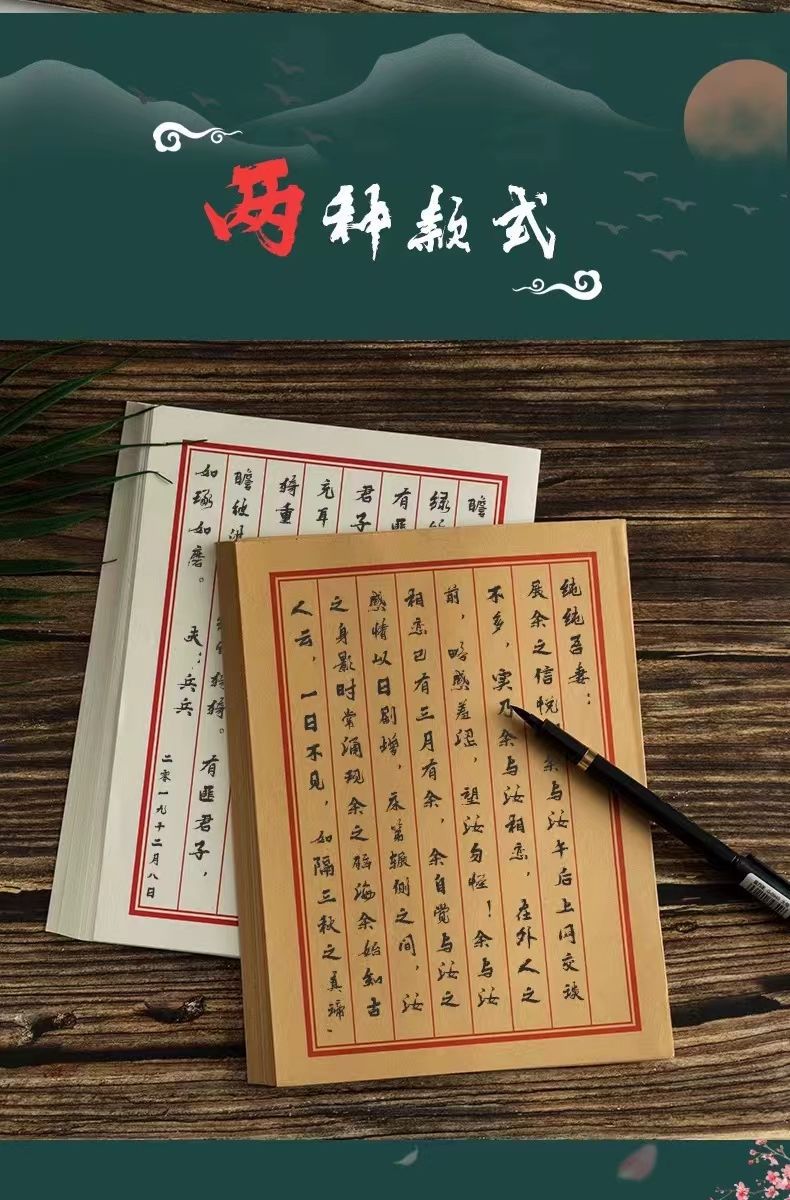 两种款式
瞻
绿
有匪
君子
充耳
猗重
瞻彼 猗猗。有匪君子，
如琢如磨。
夫：兵兵
二零一九十二月八日
纯纯吾妻：
展余之信悦 余与汝午后上网交谈
不多，实乃余与汝相恋，在外人之
前，略感羞涩，望汝勿怪！余与汝
相恋已有三月有余，余自觉与汝之
感情以日剧增，床第辗侧之间，汝
之身影时常涌现余之脑海余始知古
人云，一日不见，如隔三秋之真谛、